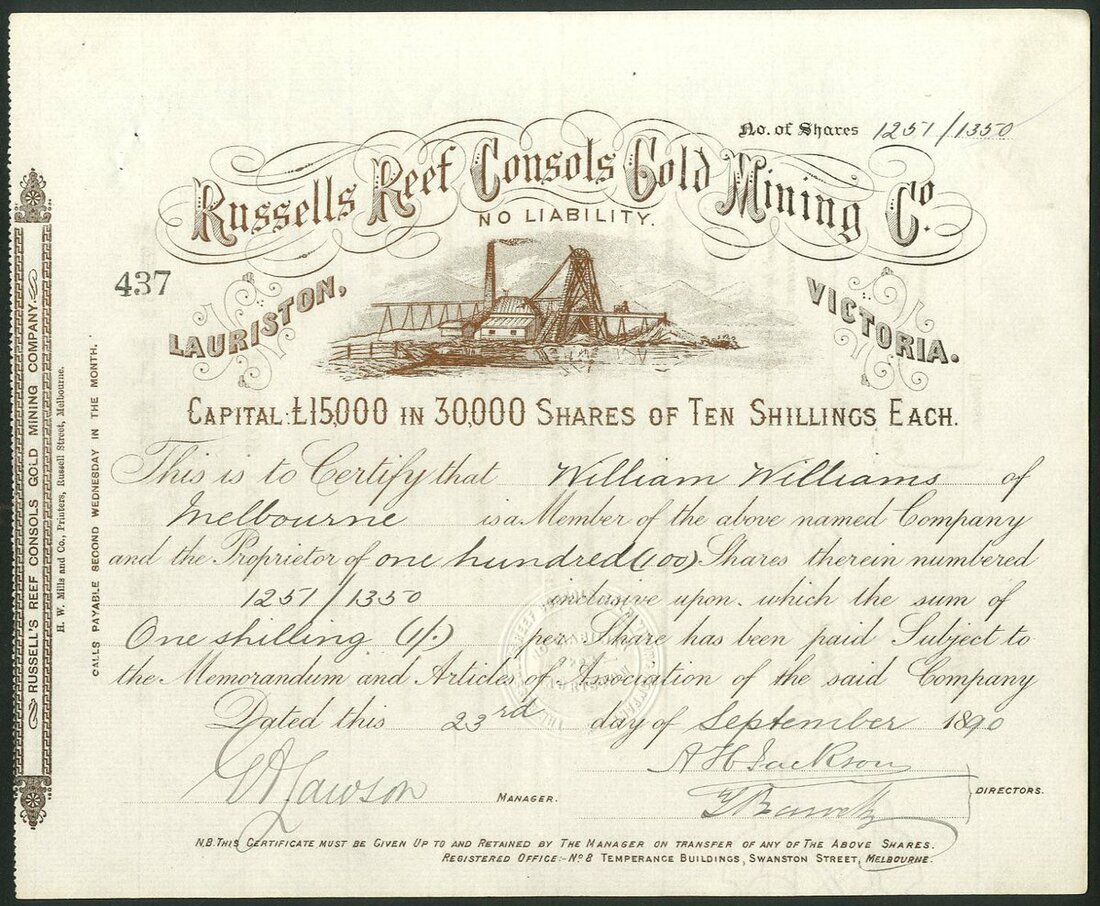 No. of Shares 1251/1350
Russells Reef Consols Gold Mining Co.
NO LIABILITY.
437
LAURISTON,
VICTORIA.
CAPITAL: £15,000 IN 30,000 SHARES OF TEN SHILLINGS EACH.
This is to Certify that William Williams of
Melbourne is a Member of the above named Company
and the Proprietor of one hundred (100) Shares therein numbered
1251/1350 inclusive upon which the sum of
One shilling (1/.) per Share has been paid Subject to
the Memorandum and Articles of Association of the said Company
Dated this 23rd day of September 1890
A H Jackson
Lawson MANAGER.
DIRECTORS.
N.B. THIS CERTIFICATE MUST BE GIVEN UP TO AND RETAINED BY THE MANAGER ON TRANSFER OF ANY OF THE ABOVE SHARES.
REGISTERED OFFICE:- No 8 TEMPERANCE BUILDINGS, SWANSTON STREET, MELBOURNE.
RUSSELL'S REEF CONSOLS GOLD MINING COMPANY.
H. W. Mills and Co., Printers, Russell Street, Melbourne.
CALLS PAYABLE SECOND WEDNESDAY IN THE MONTH.